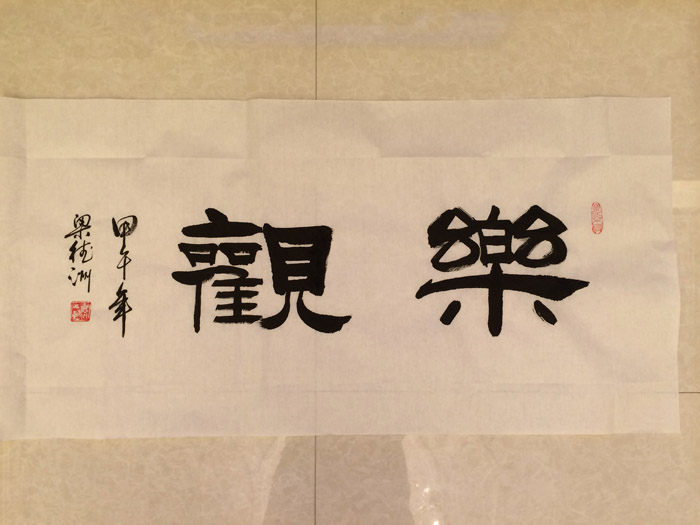 樂觀
甲午年
梁德洲